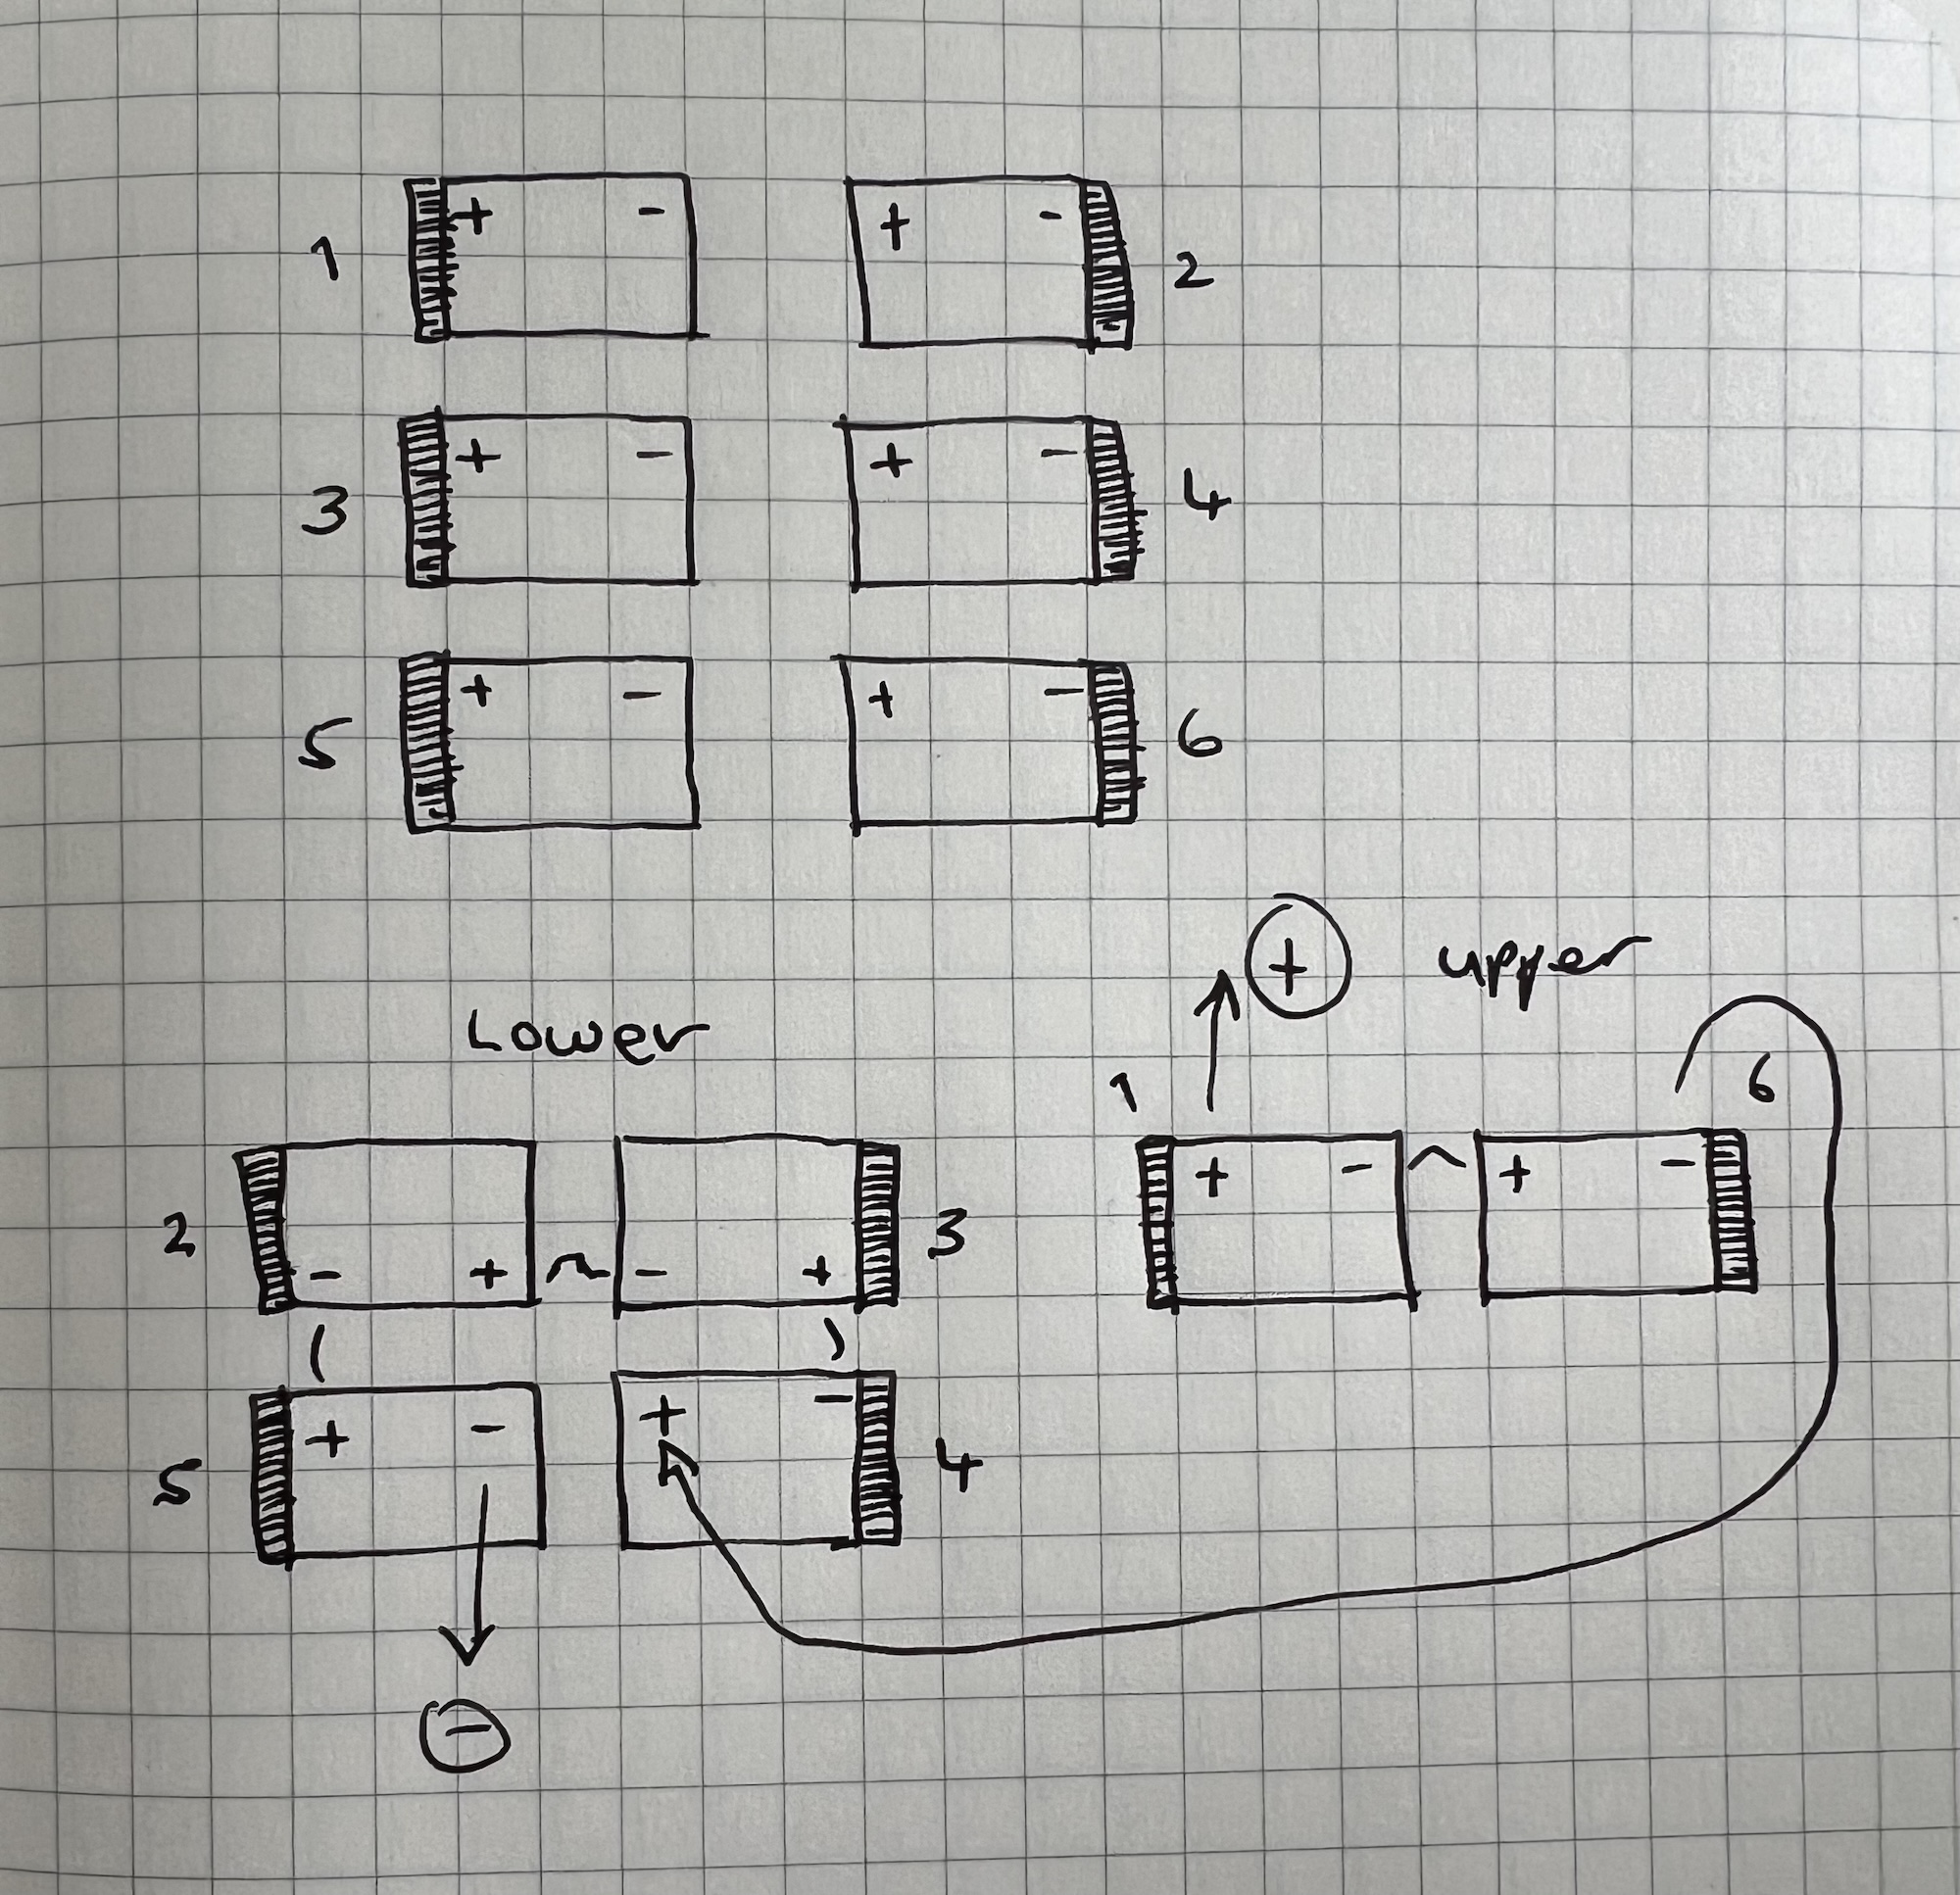 + - + -
1 2
+ - + -
3 4
+ - + -
5 6
+ upper
Lower
1 6
+ - + -
2 3
- + - +
+ - + -
5 4
-